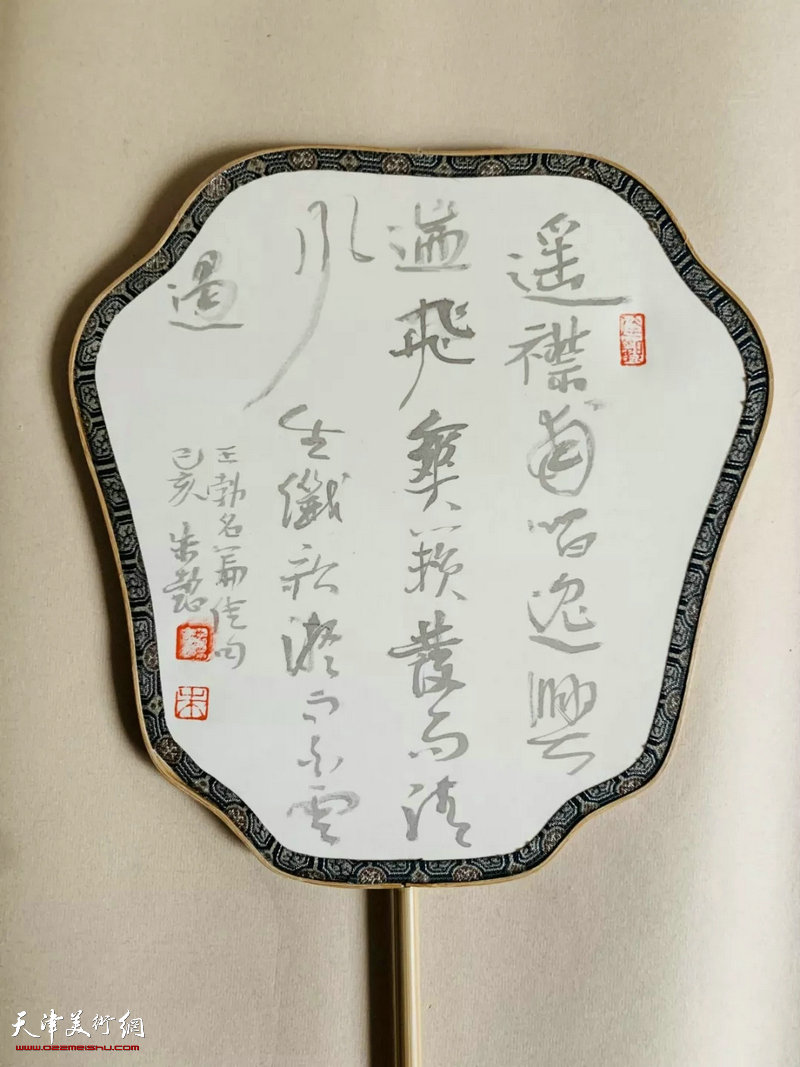 遥襟甫暢逸興
遄飛爽籟發而清
風生纖歌凝而白雲
遏
王勃名篇佳句
己亥 朱懿
朱
天津美術網
www.022meishu.com